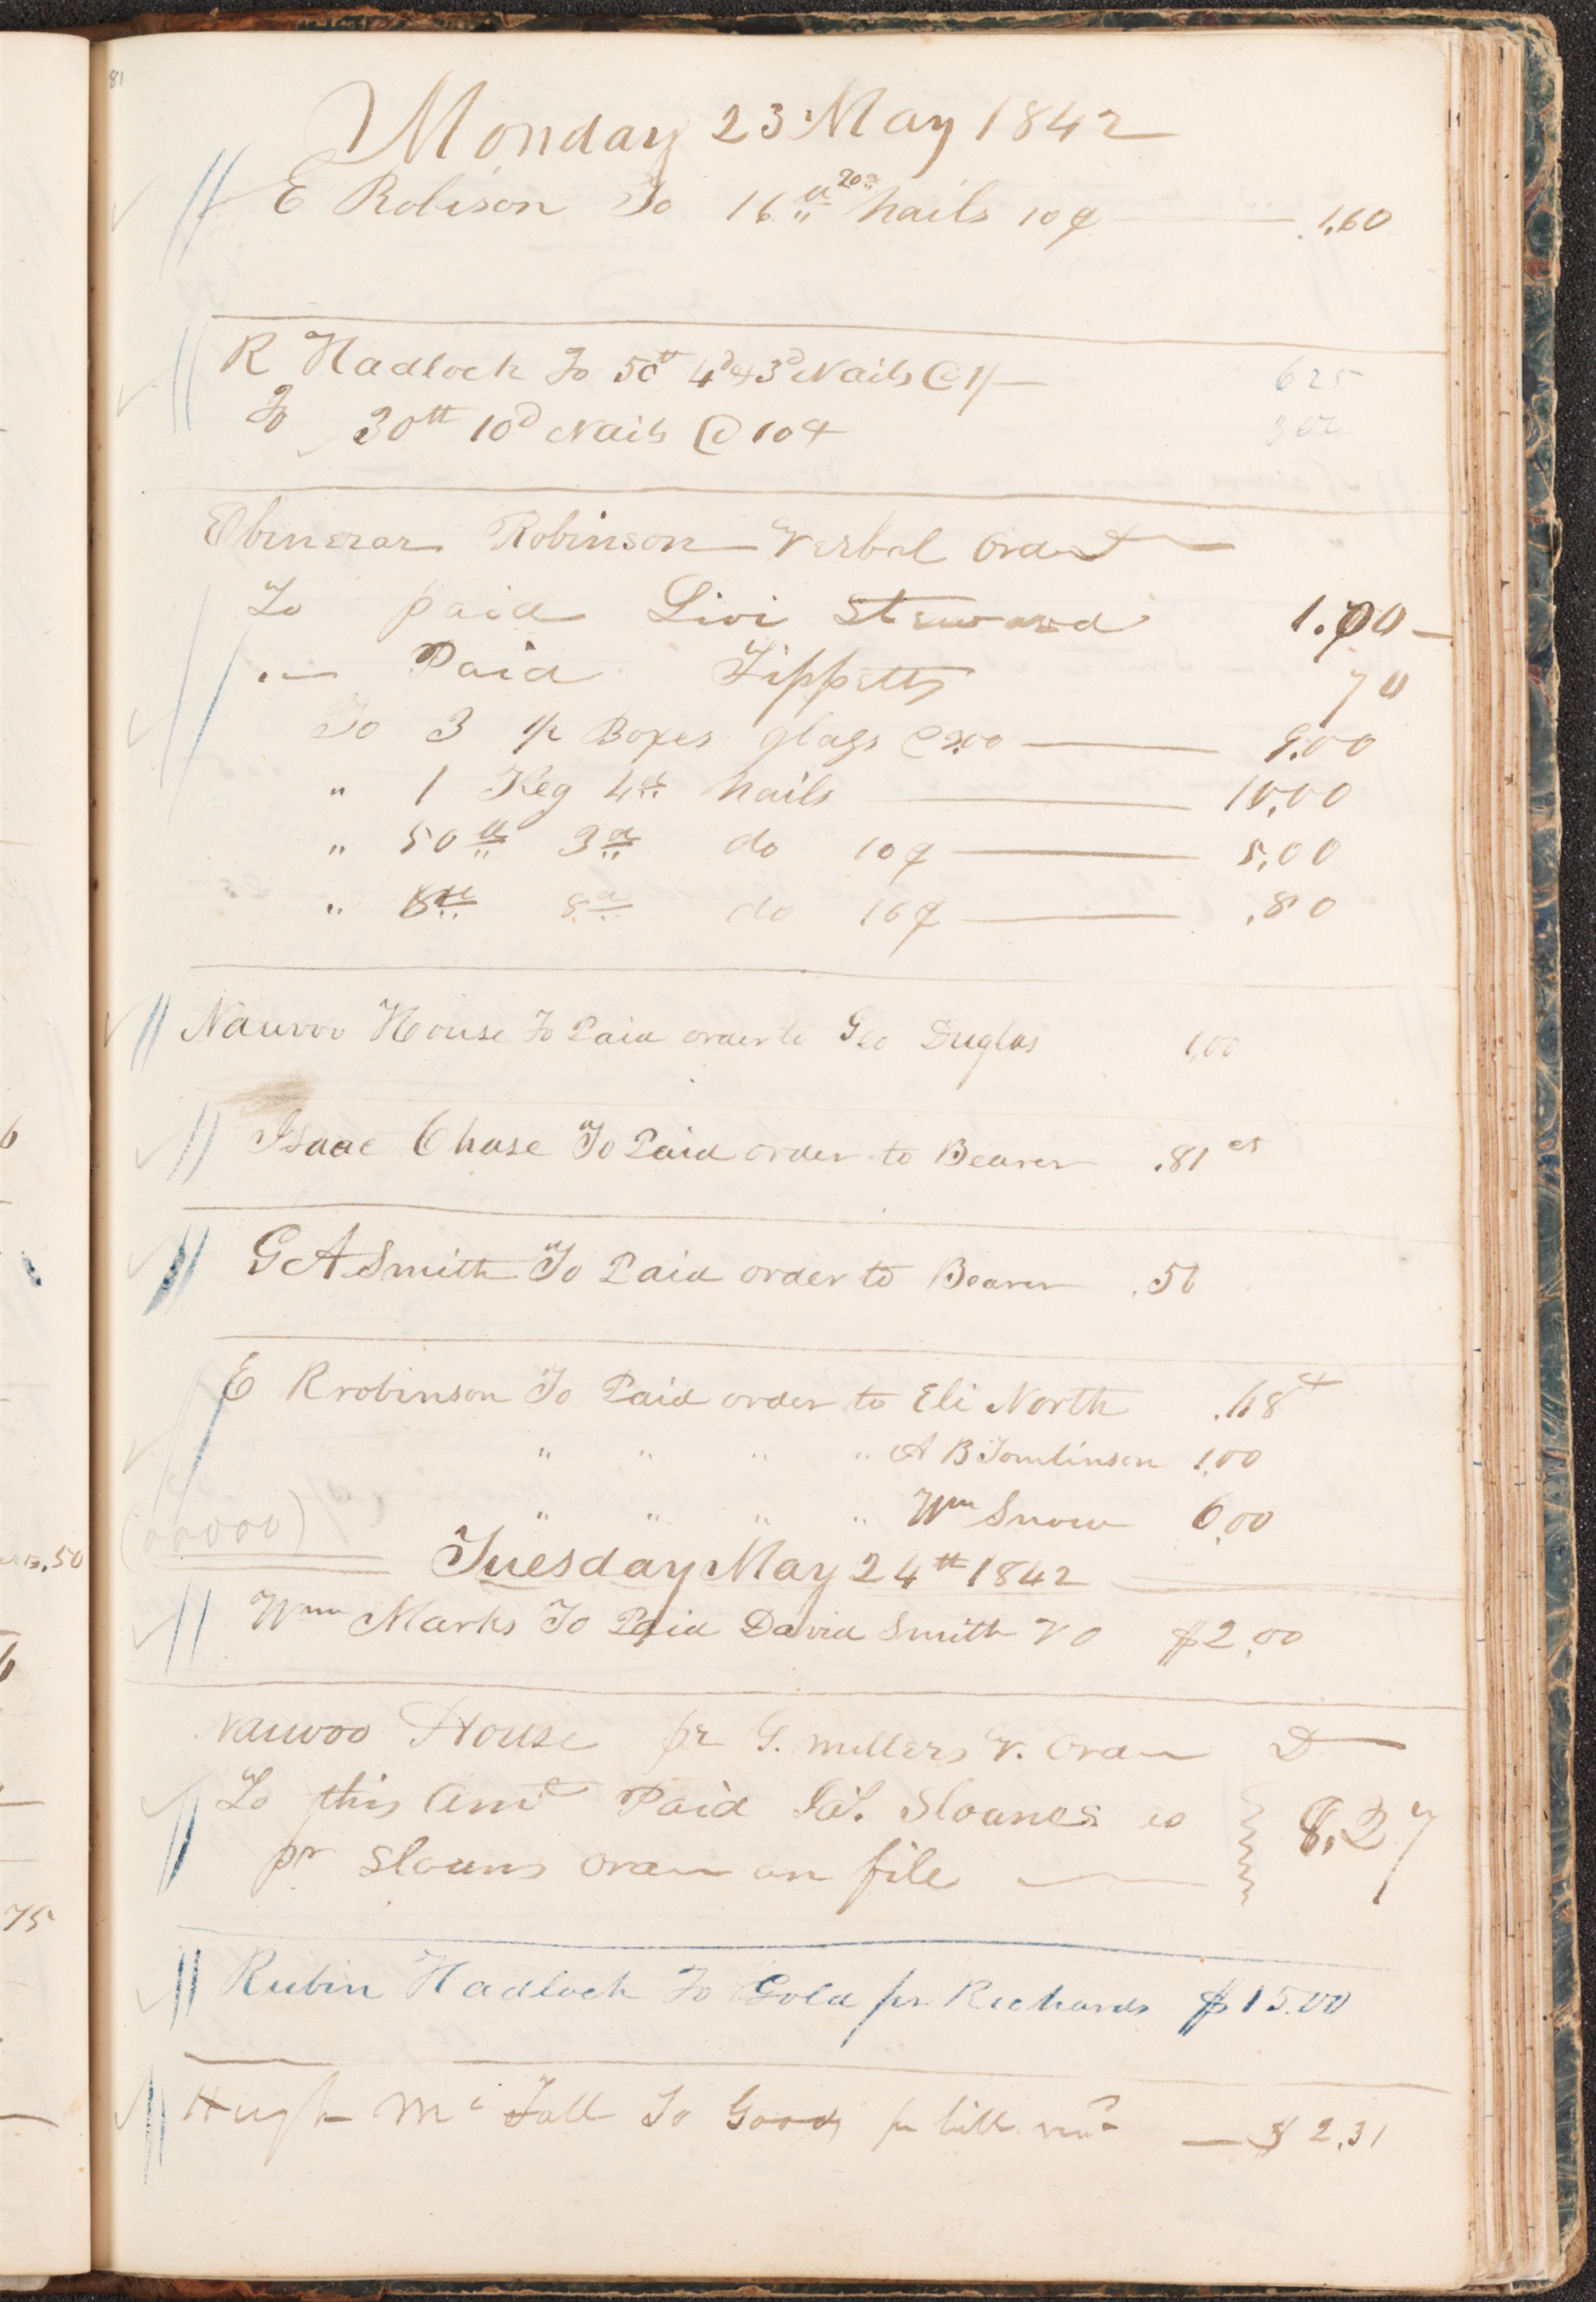 81
Monday 23 May 1842
E Robison To 16 lb 20d nails 10¢ 1.60
R Hadlock To 50lb 4d & 3d Nails @ 1/— 625
To 30tt 10d Nails @ 10¢ 300
Ebinezar Robinson Verbal Order
To paid Livi Steward 1.00
" Paid Tippetts 70
To 3 1/2 Boxes glass @ 3.00 9.00
" 1 Keg 4d nails 10.00
" 50 lb 3d do 10¢ 5,00
" 5 lb 8d do 16¢ .80
Nauvoo House To Paid order to Geo Duglas 1,00
Isaac Chase To Paid order to Bearer .81 cts
G A Smith To Paid order to Bearer .50
E Rrobinson To Paid order to Eli North .68
" " " " A B Tomlinson 1.00
" " " " Wm Snow 6.00
Tuesday May 24th 1842
Wm Marks To Paid David Smith V O $2.00
Nauvoo House pr G. Millers V. Order D
To this Amt Paid Jas. Sloanes as
pr Sloans order on file 8.27
Rubin Hadlock To Gold pr Richards $15.00
Hugh Mc Fall To Goods pr bill $2.31
75